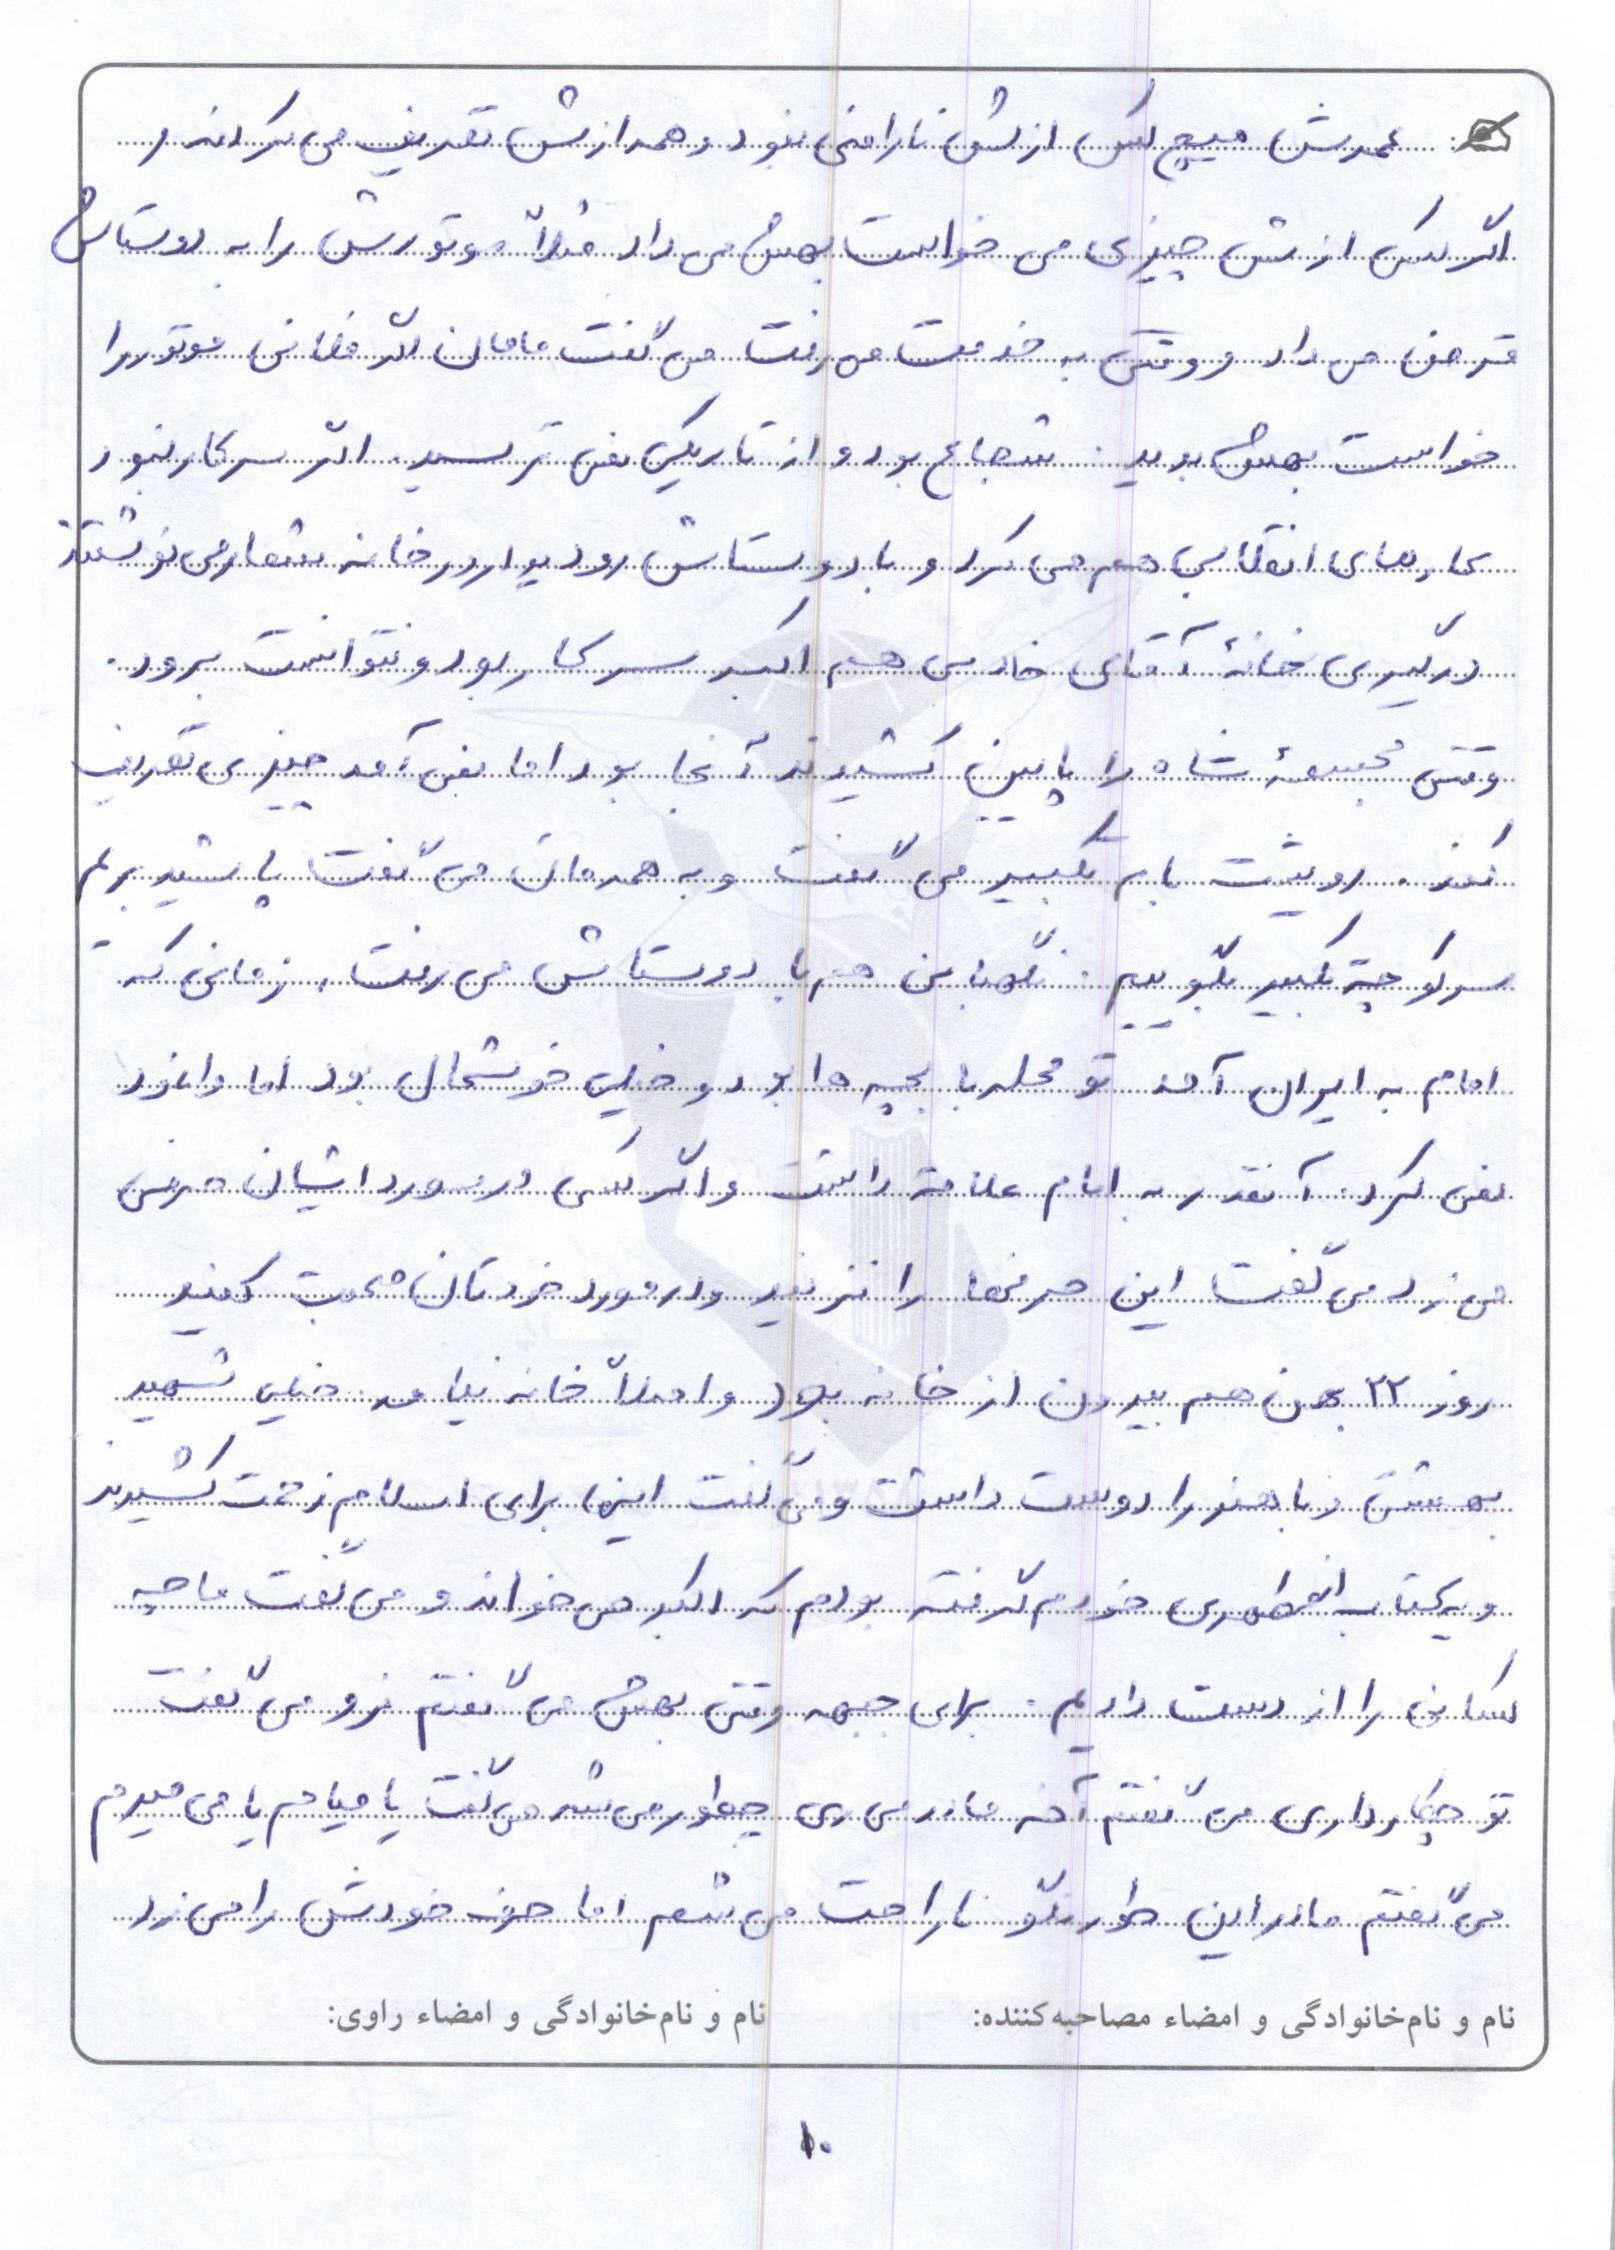 عمرش هیچ کس ازش ناراضی نبود و همه ازش تعریف می کردند و
اگر کسی ازش چیزی می خواست بهش می داد مثلاً موتورش را به دوستاش
قرض می داد و وقتی به خدمت می رفت می گفت مامان اگر فلانی موتور را
خواست بهش بدید. شجاع بود و از تاریکی نمی ترسید. اگر سر کار نبود
کارهای انقلابی هم می کرد و با دوستاش رو دیوار در خانه شعار می نوشتند
درگیری خانهٔ آقای خادمی هم اکبر سر کار بود و نتوانست برود.
وقتی مجسمهٔ شاه را پایین کشیدند آنجا بود اما نمی آمد چیزی تعریف
کند. رو پشت بام تکبیر می گفت و به همه مان می گفت پاشید بریم
سر کوچه تکبیر بگوییم. نگهبانی هم با دوستاش می رفت. زمانی که
امام به ایران آمد تو محله با بچه ها بود و خیلی خوشحال بود اما وانمود
نمی کرد. آنقدر به امام علاقه داشت و اگر کسی در مورد ایشان حرفی
می زد می گفت این حرفها را نزنید و در مورد خودتان صحبت کنید
روز ۲۲ بهمن هم بیرون از خانه بود و اصلاً خانه نیامد. خیلی شهید
بهشتی و باهنر را دوست داشت و می گفت اینها برای اسلام زحمت کشیدند
و یه کتاب از مطهری خودم گرفته بودم که اکبر می خواند و می گفت ما چه
کسانی را از دست دادیم. برای جبهه وقتی بهش می گفتم نرو می گفت
تو چکار داری می گفتم آخه مادر می ری چطور می شه می گفت یا میام یا می میرم
می گفتم مادر این طور نگو ناراحت می شم اما حرف خودش را می زد
نام و نام‌خانوادگی و امضاء مصاحبه‌کننده: نام و نام‌خانوادگی و امضاء راوی:
۱۰